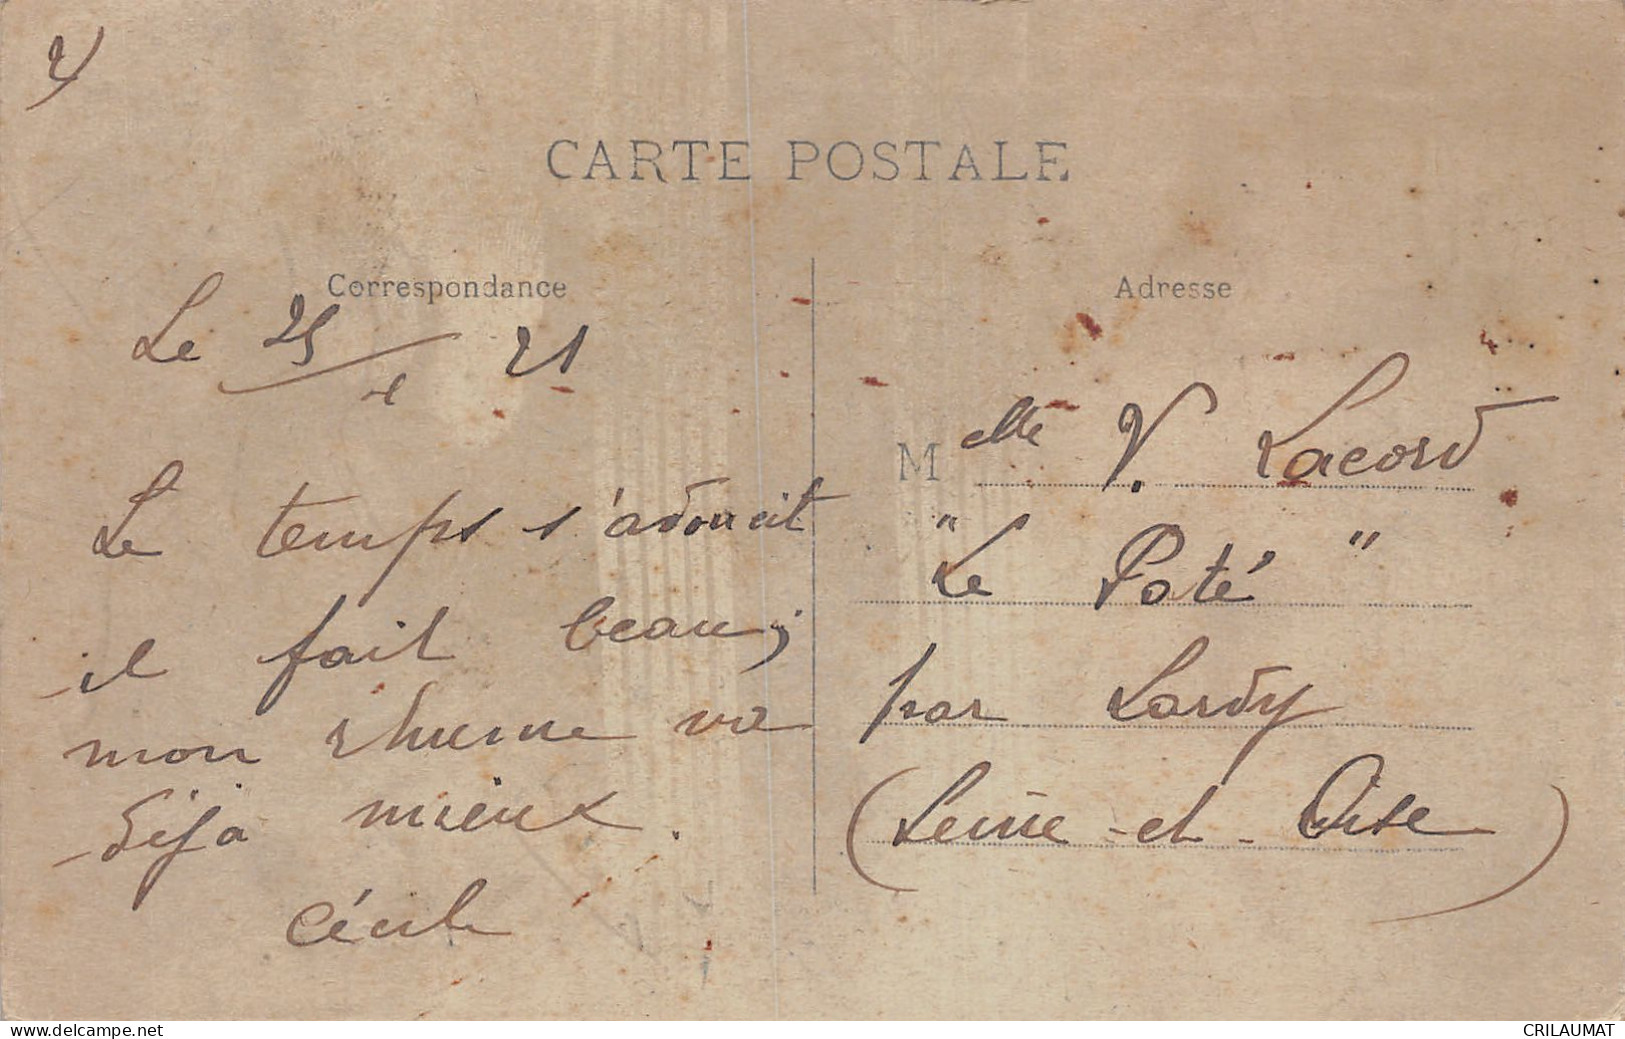 4)
CARTE POSTALE
Correspondance
Le 25/1 21
Le temps s'adoucit
il fait beau;
mon rhume va
déjà mieux.
Cécile
Adresse
Melle V. Lacord
"Le Pâté"
par Lardy
(Seine-et-Oise)
www.delcampe.net
CRILAUMAT